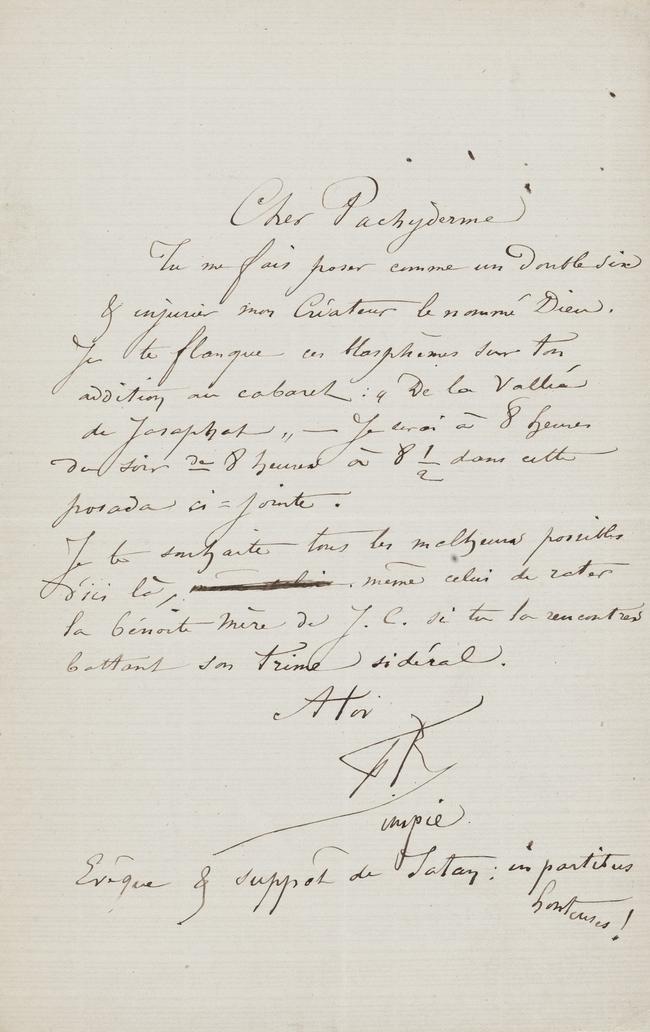 Cher Pachyderme
Tu me fais poser comme un Double six
& injurier mon Créateur le nommé Dieu.
Je te flanque ces blasphèmes sur ton
addition au cabaret : „ De la Vallée
de Josaphat „ — Je serai à 8 heures
du soir de 8 heures à 8 1/2 dans cette
posada ci=jointe.
Je te souhaite tous les malheurs possibles
d'ici là, même celui de rater
la bénoite Mère de J. C. si tu la rencontres
battant son trime sidéral.
A toi
FR
impie
Evêque & suppôt de Satan : in partibus
honteuses !